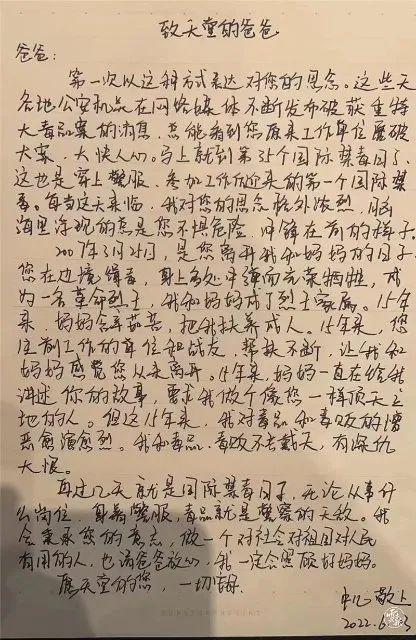 致天堂的爸爸
爸爸:
第一次以这种方式表达对您的思念。这些天
各地公安机关在网络媒体不断发布破获重特
大毒品案的消息,总能看到您原来工作单位屡破
大案,大快人心。马上就到第35个国际禁毒日了,
这也是穿上警服、参加工作以来的第一个国际禁
毒。每当这天来临,我对您的思念格外浓烈,脑
海里浮现的总是您不惧危险、冲锋在前的样子。
2007年3月25日,是您离开我和妈妈的日子。
您在边境缉毒,身上多处中弹而光荣牺牲,成
为一名革命烈士,我和妈妈成了烈士家属。15年
来,妈妈含辛茹苦,把我扶养成人。15年来,您
生前工作的单位和战友,帮扶不断,让我和
妈妈感觉您从未离开。15年来,妈妈一直在给我
讲述你的故事,要求我做个像您一样顶天立
地的人。但这15年来,我对毒品和毒贩的憎
恶愈演愈烈。我和毒品、毒贩不共戴天,有深仇
大恨。
再过几天就是国际禁毒日了,无论从事什
么岗位,身着警服,毒品就是警察的天敌。我
会秉承您的意志,做一个对社会对祖国对人民
有用的人,也请爸爸放心,我一定会照顾好妈妈。
愿天堂的您,一切安好。
敬上
2022.6.